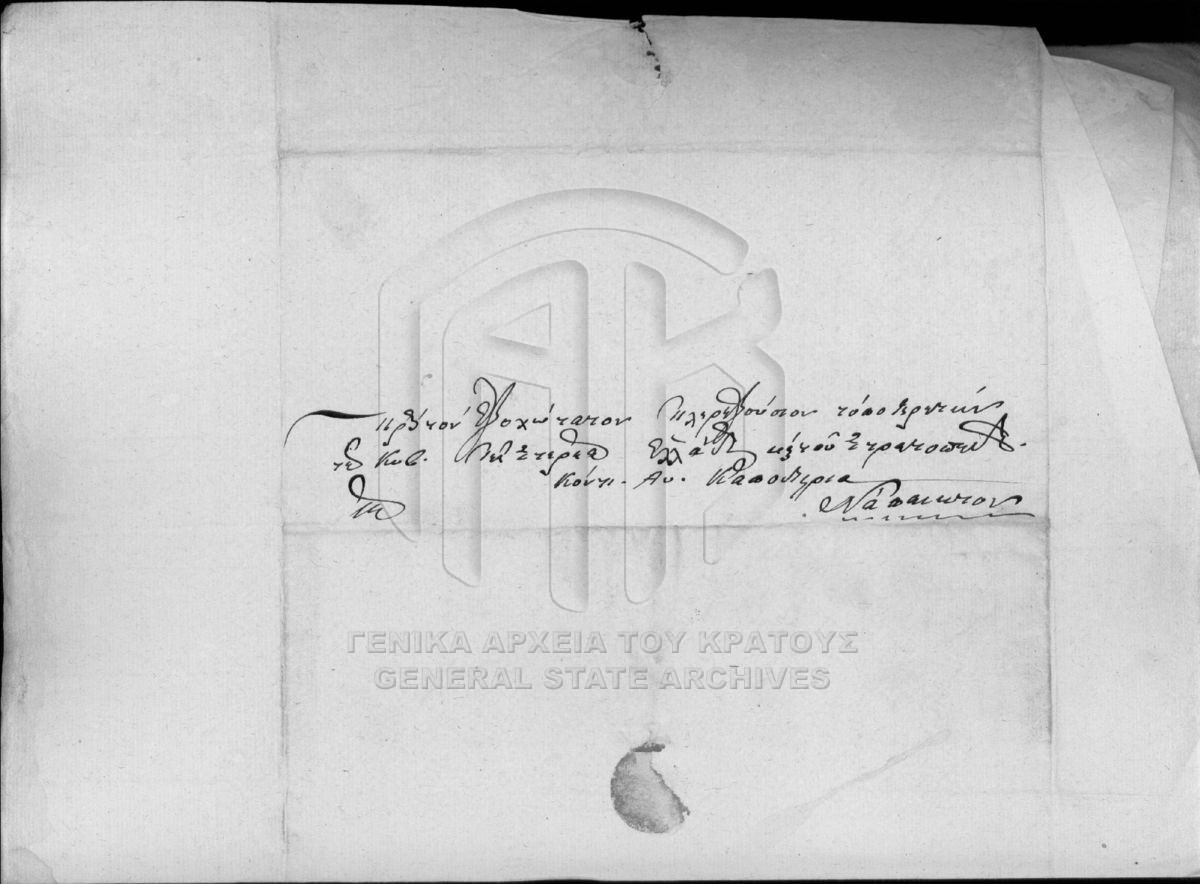 Πρὸς τὸν Ἐξοχώτατον Πληρεξούσιον τοποτηρητὴν
τῆς Κυβ. τῆς Στερεᾶς Ἑλλάδ καὶ τοῦ Στρατοπέδ.
Κόντε. Αυ. Καποδίστρια
Ναύπακτον
ΓΕΝΙΚΑ ΑΡΧΕΙΑ ΤΟΥ ΚΡΑΤΟΥΣ
GENERAL STATE ARCHIVES